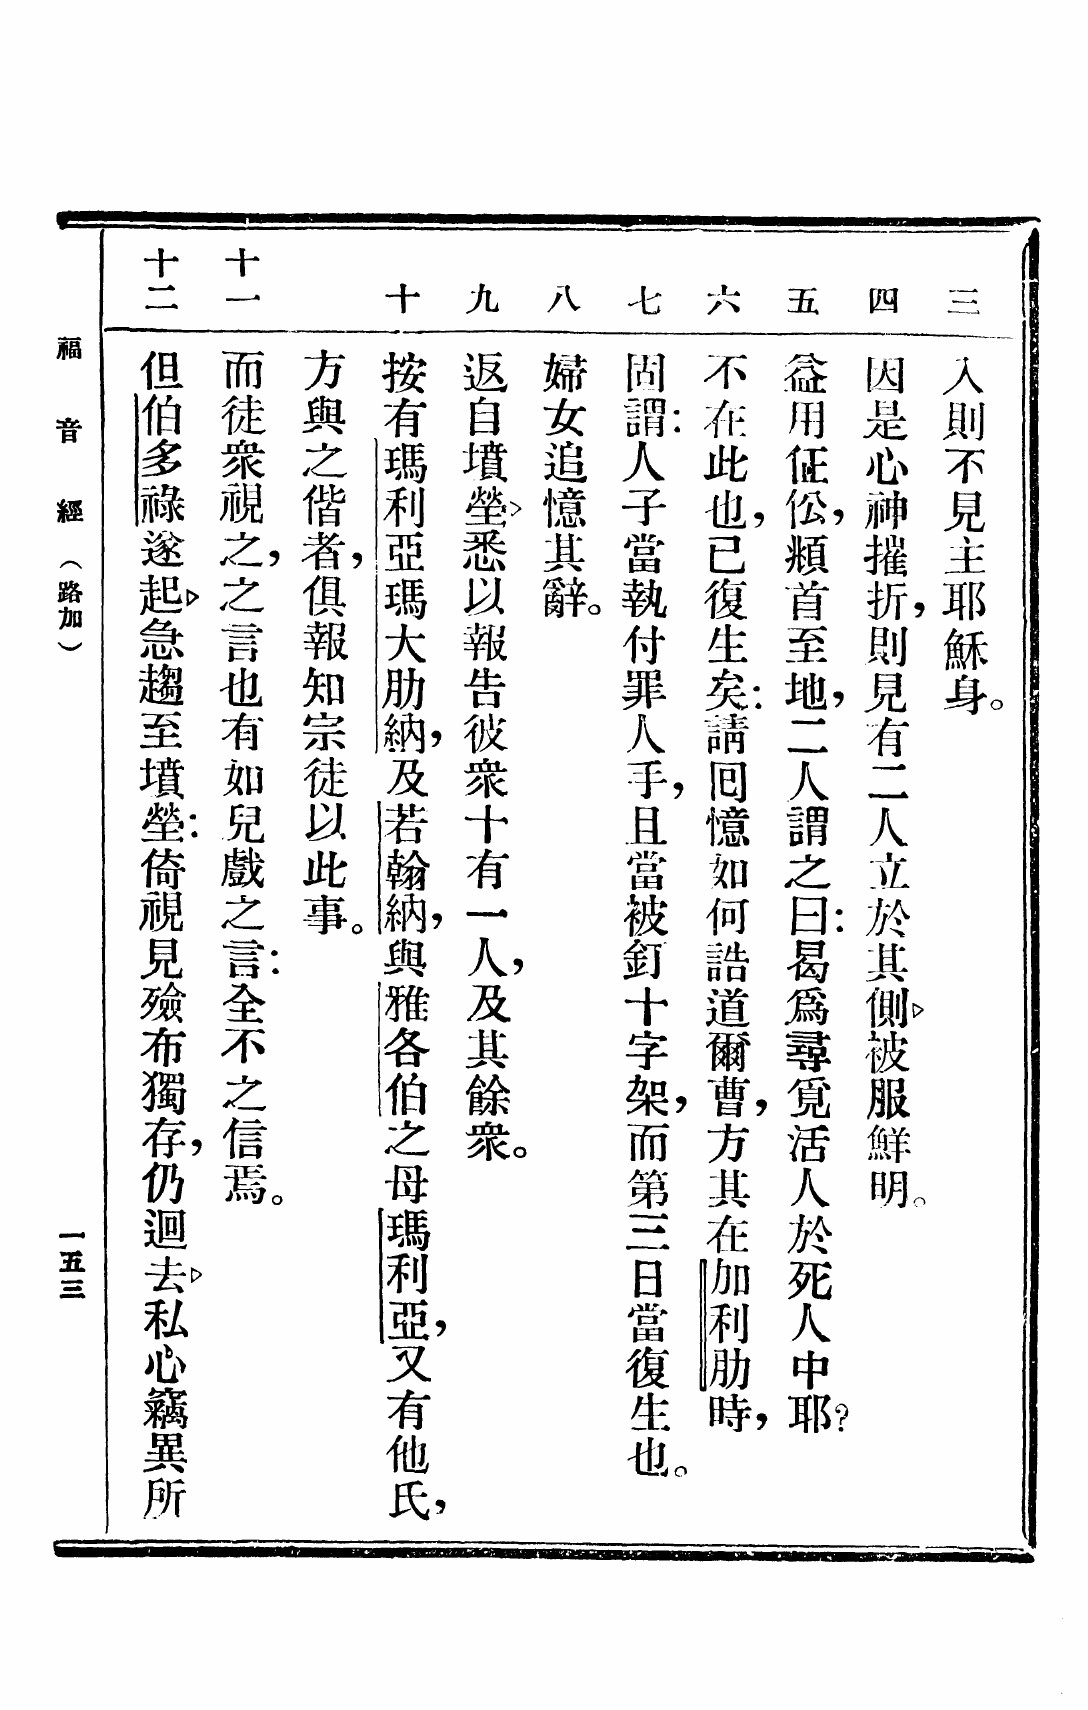 三 入則不見主耶穌身。
四 因是心神摧折，則見有二人立於其側▷被服鮮明。
五 益用怔伀，頫首至地，二人謂之曰：曷爲尋覓活人於死人中耶？
六 不在此也，已復生矣：請囘憶如何誥道爾曹，方其在加利肋時，
七 固謂：人子當執付罪人手，且當被釘十字架，而第三日當復生也。
八 婦女追憶其辭。
九 返自墳塋▷悉以報告彼衆十有一人，及其餘衆。
十 按有瑪利亞瑪大肋納，及若翰納，與雅各伯之母瑪利亞，又有他氏，
方與之偕者，俱報知宗徒以此事。
十一 而徒衆視之，之言也有如兒戲之言：全不之信焉。
十二 但伯多祿遂起▷急趨至墳塋：倚視見殮布獨存，仍迴去▷私心竊異所
福音經（路加） 一五三